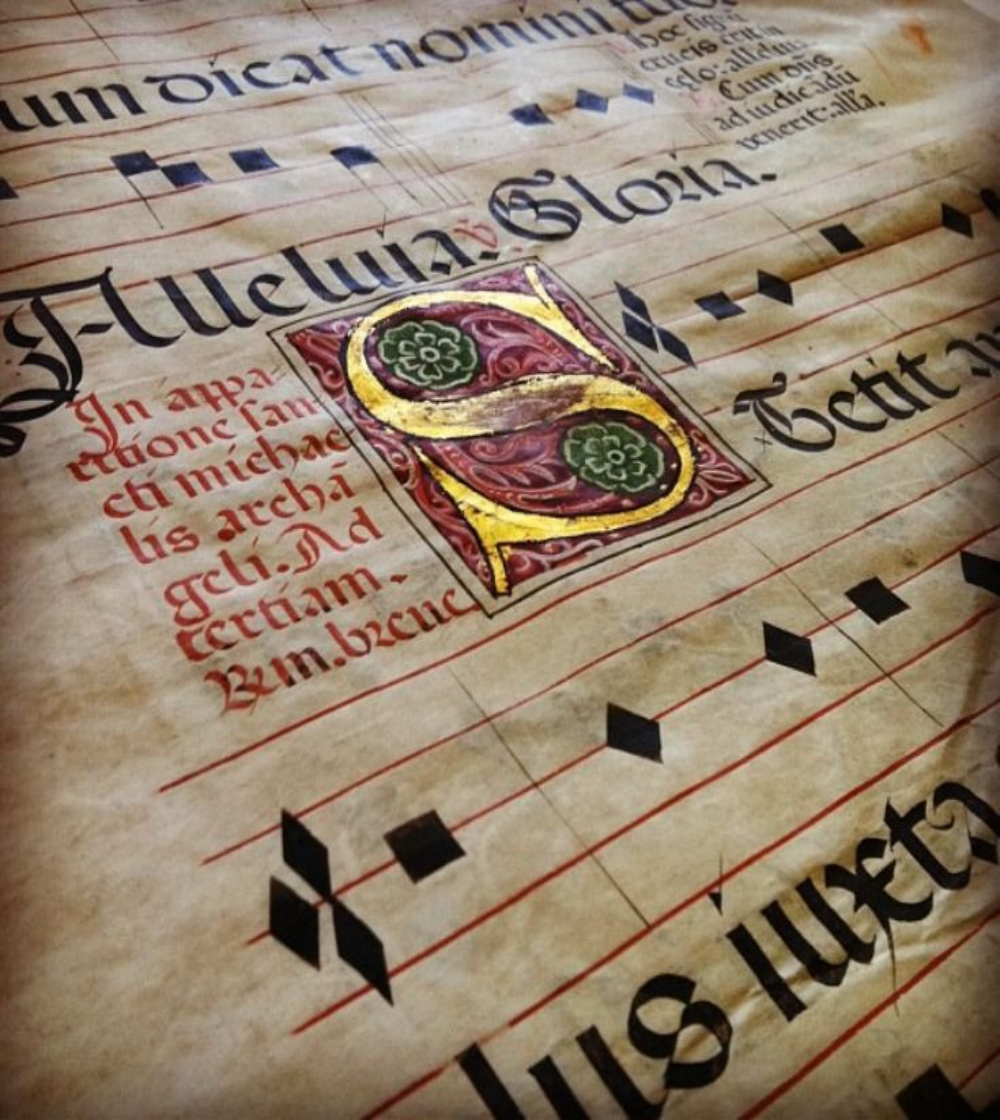 um dicat nomini tuo.
Hoc signū
crucis erit in
celo: alleluia.
Cum dn̄s
ad iudicadū
venerit: alla.
Alleluia. ℣ Gloria.
In appa-
ritione san
cti michae
lis archā
geli. Ad
tertiam.
Rn. breue
S
Tetit an
lus iuxta